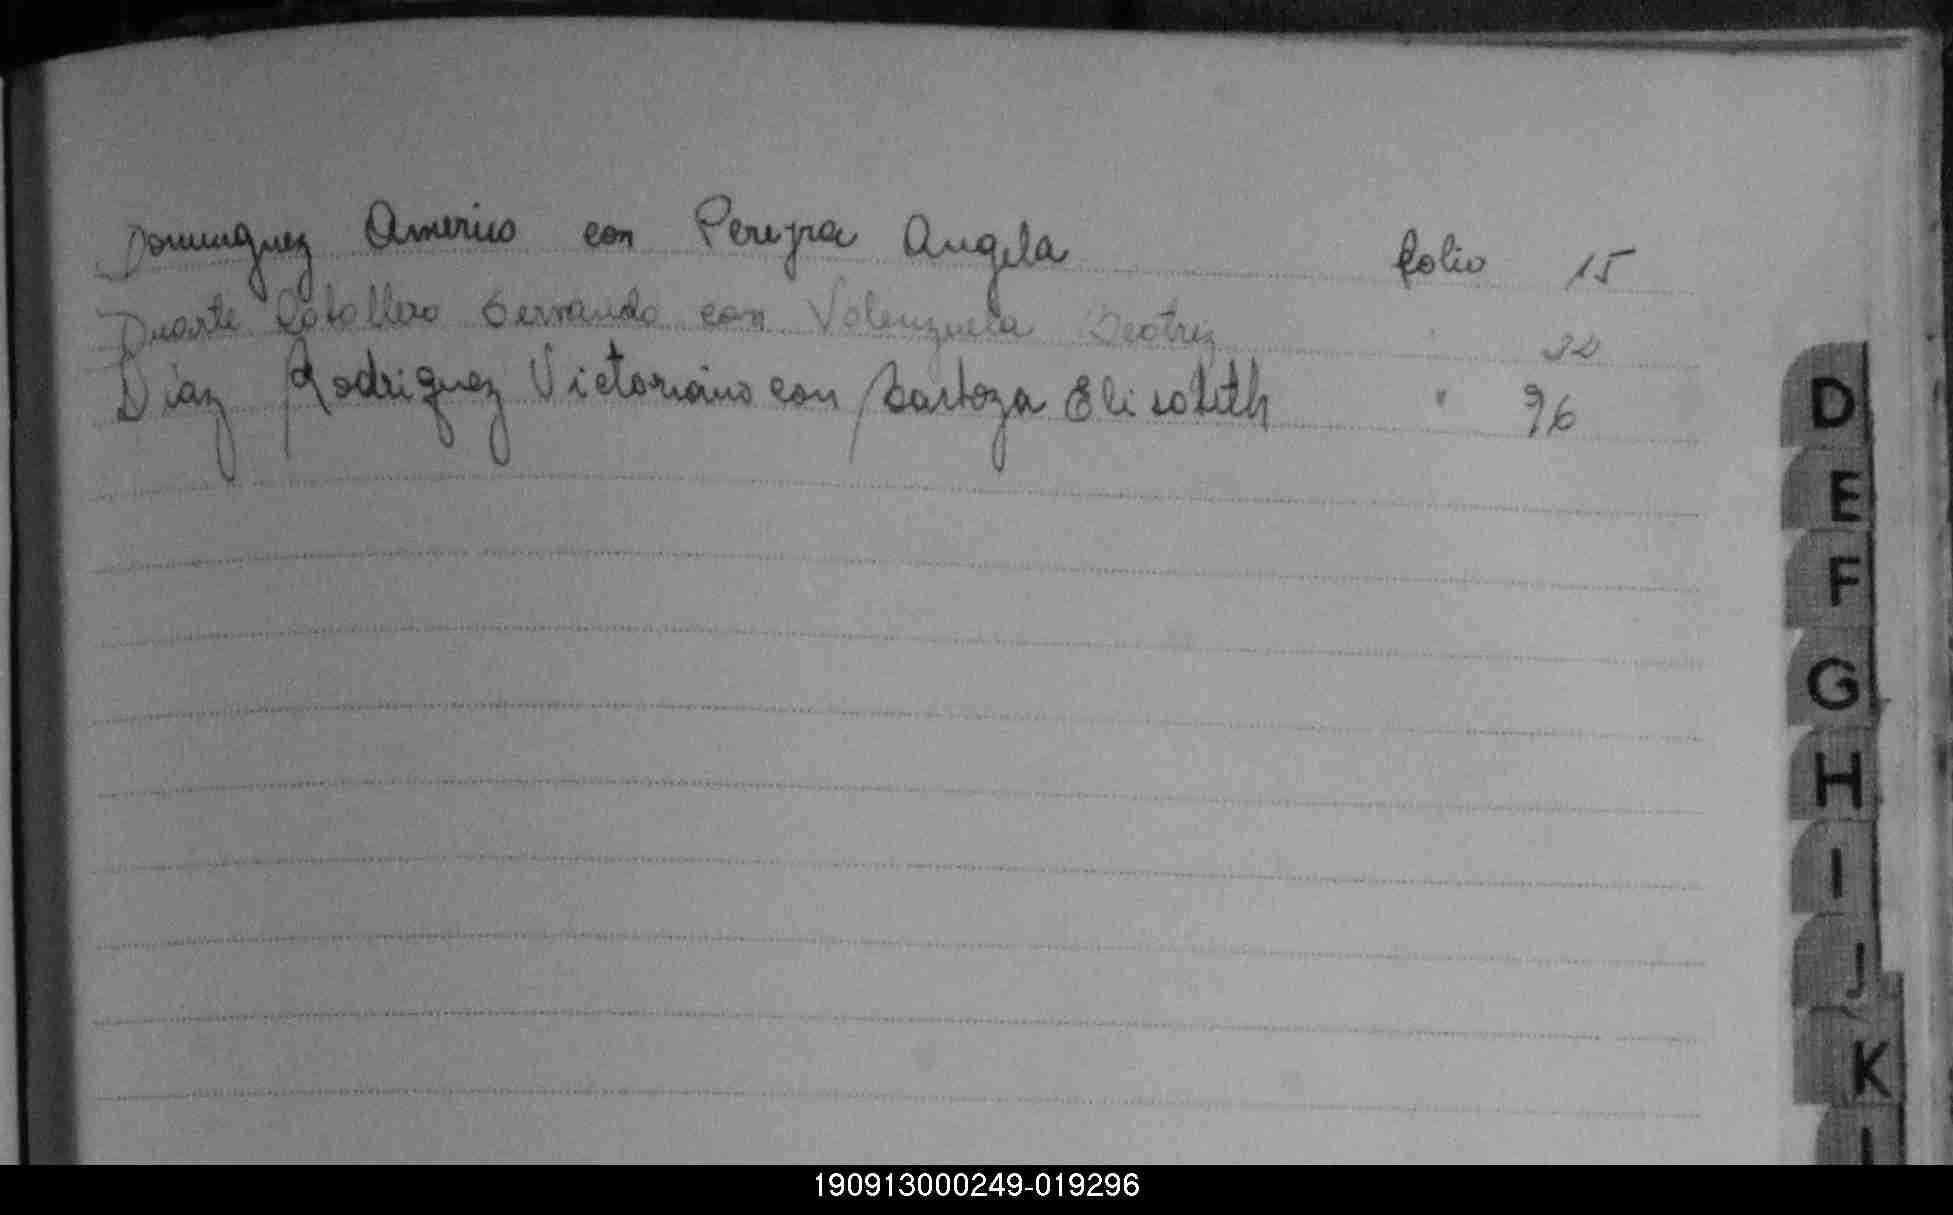 Dominguez Americo con Pereyra Angela folio 15
Duarte Caballero Servando con Valenzuela Beatriz " 32
Diaz Rodriguez Victoriano con Bartoza Elisabeth " 96
D
E
F
G
H
I
J
K
190913000249-019296